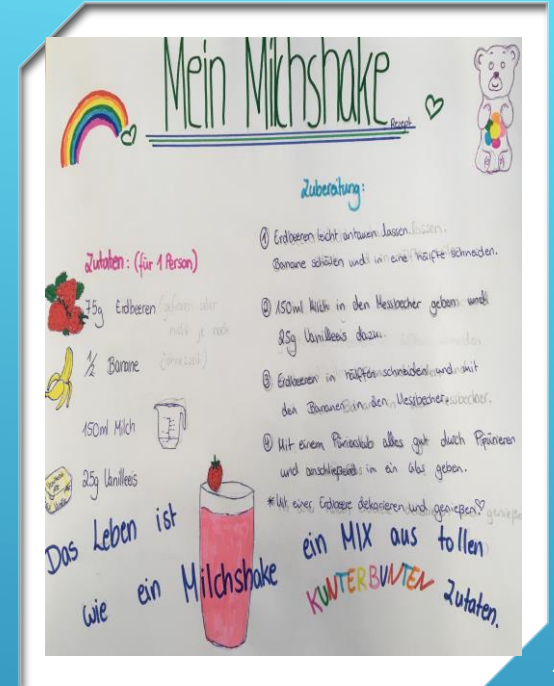 Mein Milchshake
Rezept
Zutaten: (für 1 Person)
75g Erdbeeren (gefroren oder
nicht je nach
Jahreszeit)
1/2 Banane
150ml Milch
25g Vanilleeis
Zubereitung:
① Erdbeeren leicht antauen lassen.
Banane schälen und in eine hälfte schneiden.
② 150ml Milch in den Messbecher geben und
25g Vanilleeis dazu.
③ Erdbeeren in hälften schneiden und mit
den Bananen in den Messbecher.
④ Mit einem Pürierstab alles gut durch Pürieren
und anschließend in ein Glas geben.
*Mit einer Erdbeere dekorieren und genießen.
Das Leben ist
wie ein Milchshake
ein MIX aus tollen
KUNTERBUNTEN Zutaten.